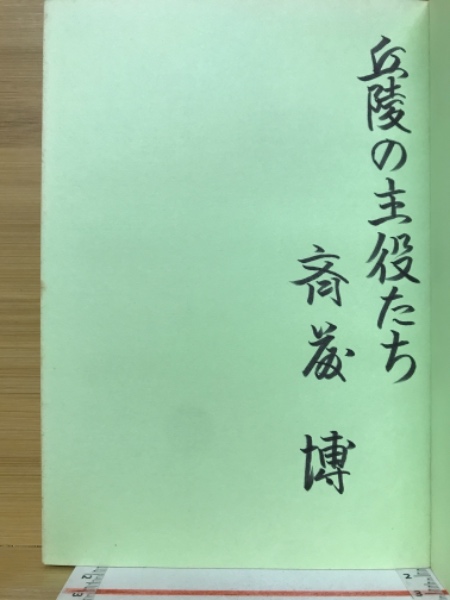 丘陵の主役たち
斉藤博